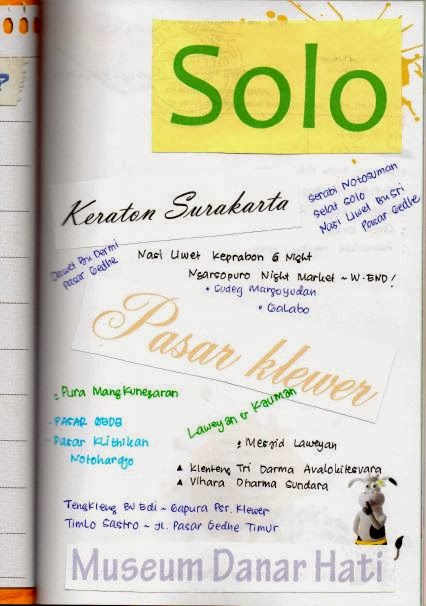 ?
Solo
Serabi Notosuman
Selat Solo
Nasi Liwet Bu Sri
Pasar Gedhe
Keraton Surakarta
Dawet Bu Dermi
Pasar Gedhe
Nasi Liwet Keprabon @ Night
Ngarsopuro Night Market ~ W.END!
• Gudeg Margoyudan
• Galabo
Pasar klewer
; Pura Mangkunegaran
Laweyan & Kauman
- PASAR GEDE
- Pasar Klithikan
Notoharjo
; Mesjid Laweyan
▲ Klenteng Tri Darma Avalokitesvara
▲ Vihara Dharma Sundara
Tengkleng Bu Edi ~ Gapura Psr. Klewer
Timlo Sastro ~ Jl. Pasar Gedhe Timur
Museum Danar Hati